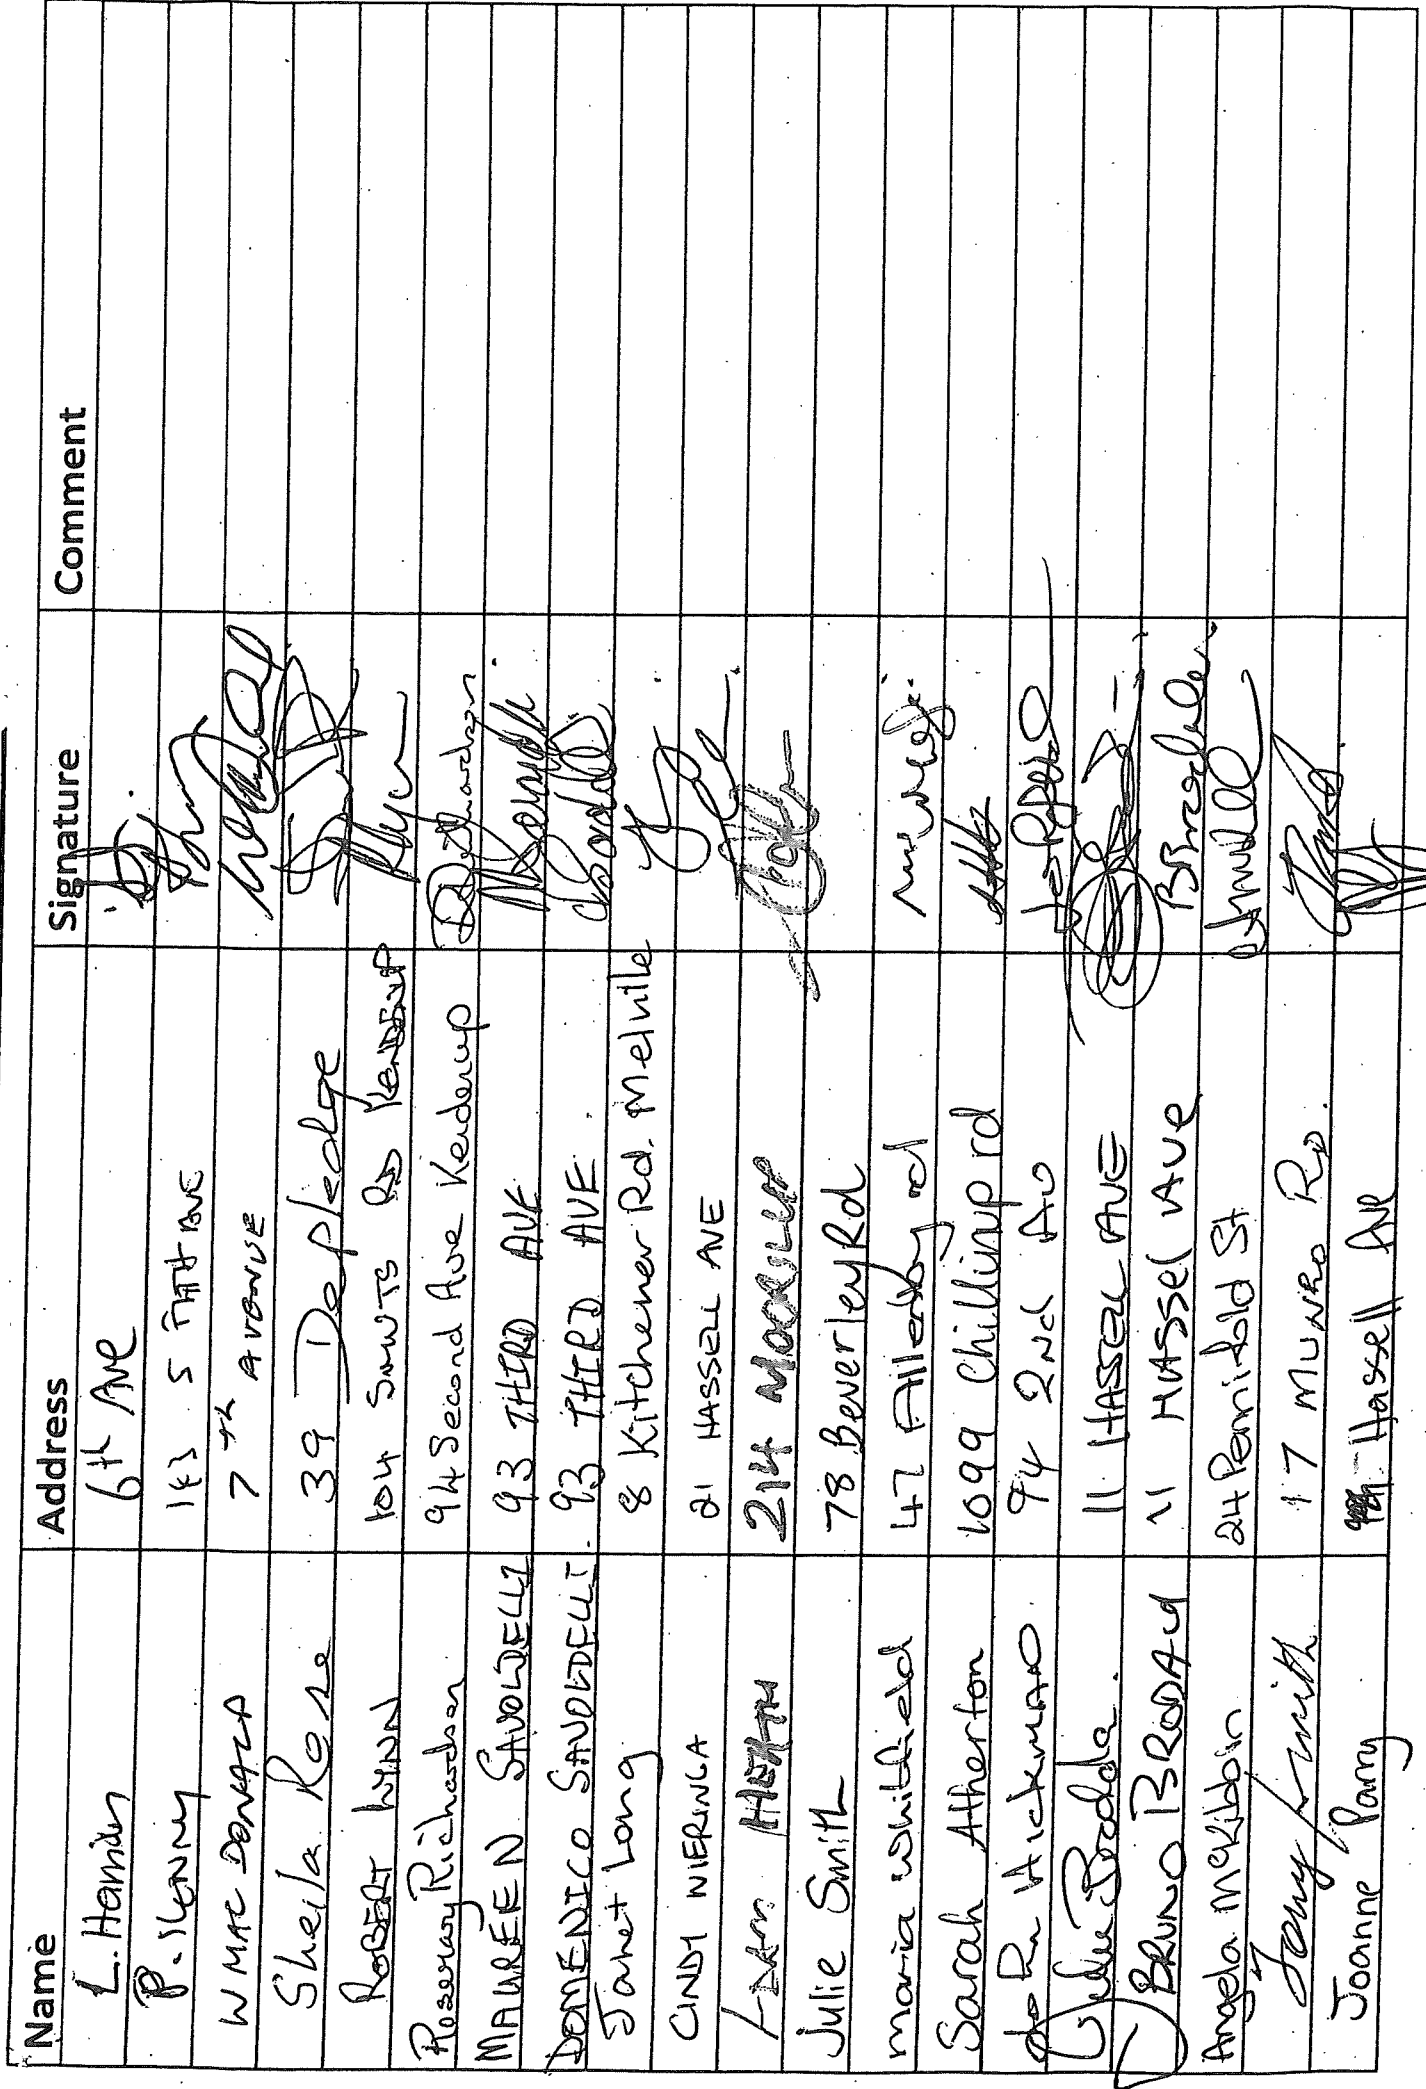 Name Address Signature Comment
L. Hamin 6th Ave
P. Kenny 143 5 Ave
W MAC DONALD 7th AVENUE
Sheila Rose 39 Depledge
ROBERT WYNN 104 RD KENDENUP
Rosemary Richardson 94 Second Ave Kendenup Richardson
MAUREEN SAVOLDELLI 93 THIRD AVE
DOMENICO SAVOLDELLI. 93 THIRD AVE.
Janet Long 8 Kitchener Rd. Melville
CINDY WIERINGA 21 HASSELL AVE
HEATH 214 MOORILUP
Julie Smith 78 Beverley Rd
maria whitfield 47 Allenby rd
Sarah Atherton 1099 Chillinup rd
HICKMAN 94 2nd Av
Julie Brodala. 11 HASSELL AVE
BRUNO BRODALA 11 HASSel AVE
Angela McKibbin 24 Pennifold St
Tony Smith 17 MUNRO RD.
Joanne Parry Hassell Ave